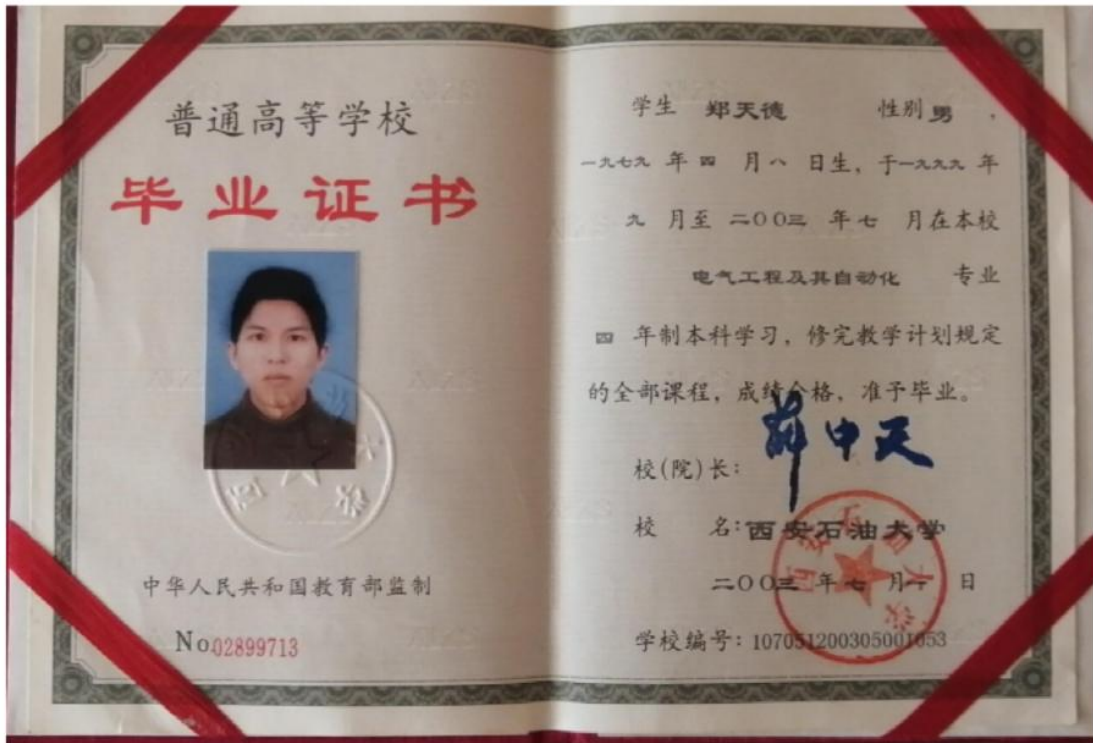 普通高等学校
毕业证书
中华人民共和国教育部监制
No.02899713
学生 郑天德 性别 男,
一九七九 年 四 月 八 日生, 于 一九九九 年
九 月至 二〇〇三 年 七 月在本校
电气工程及其自动化 专业
四 年制本科学习, 修完教学计划规定
的全部课程, 成绩合格, 准予毕业。
校(院)长: 薛中天
校 名: 西安石油大学
二〇〇三 年 七 月 一 日
学校编号: 107051200305001053